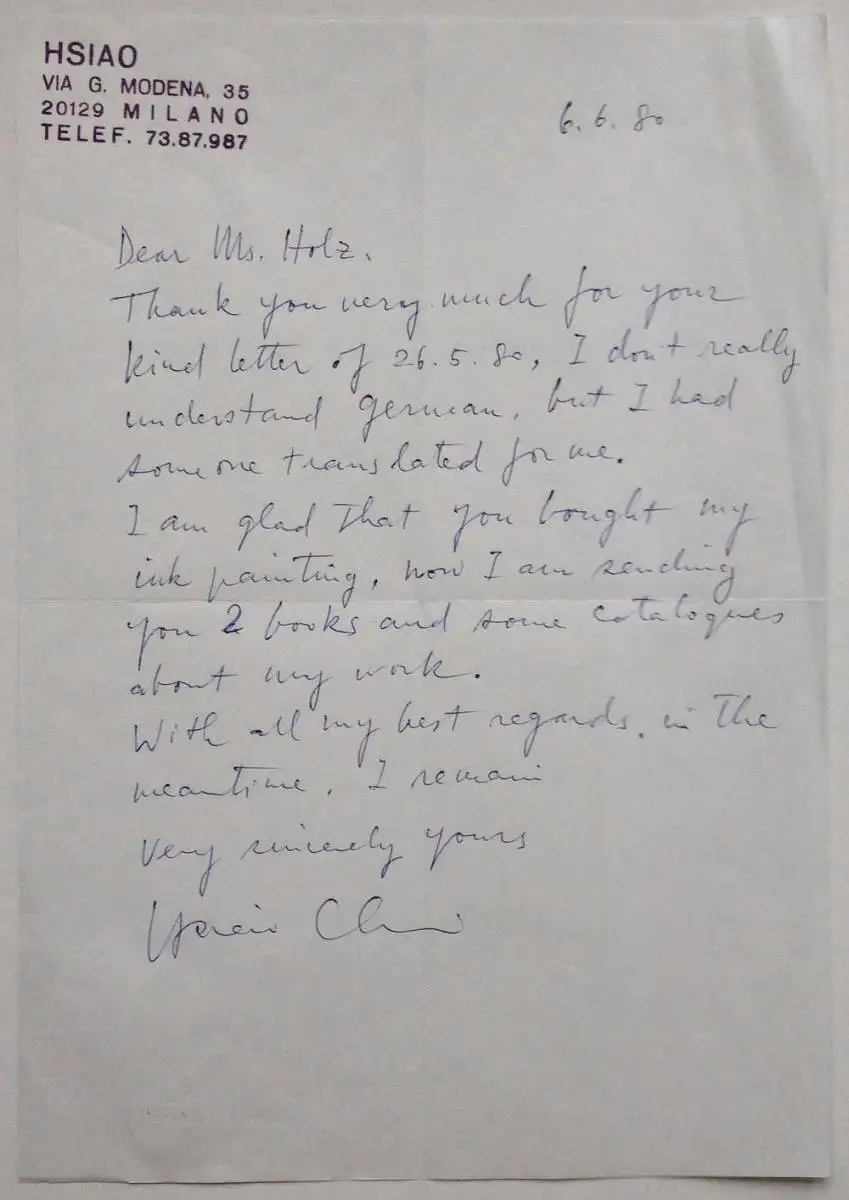 HSIAO
VIA G. MODENA, 35
20129 MILANO
TELEF. 73.87.987
6. 6. 80
Dear Ms. Holz.
Thank you very much for your
kind letter of 26. 5. 80, I don't really
understand german, but I had
someone translated for me.
I am glad that you bought my
ink painting, now I am sending
you 2 books and some catalogues
about my work.
With all my best regards, in the
meantime, I remain
very sincerely yours
Hsiao Chin